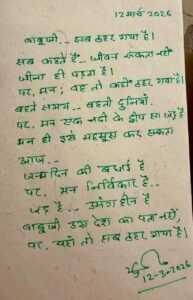 12 मार्च 2026
बाबूजी.. सब ठहर गया है।
सब कहते हैं.. जीवन रुकता नहीं
जीना ही पड़ता है।
पर, मन; वह तो कहीं ठहर गया है।
बहते समय.. बहती दुनियाँ..
पर, मन एक नदी के द्वीप सा जड़ है
मन ही इसे महसूस कर सकता
आज..
जन्मदिन की बधाई है
पर, मन निर्विकार है..
जड़ है.. उमंग हीन है
बाबूजी उस देश का पता नहीं,
पर, यहाँ तो सब ठहर गया है।
12-3-2026